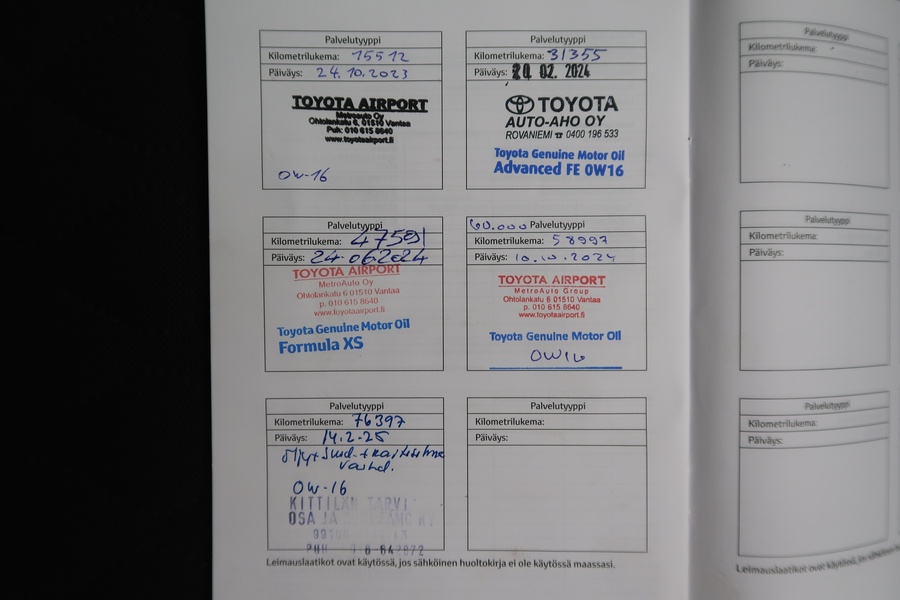 Palvelutyyppi
Kilometrilukema: 15512
Päiväys: 24.10.2023
TOYOTA AIRPORT
Metroauto Oy
Ohtolankatu 6, 01510 Vantaa
Puh: 010 615 8640
www.toyotaairport.fi
0W-16
Palvelutyyppi
Kilometrilukema: 31355
Päiväys: 20. 02. 2024
TOYOTA
AUTO-AHO OY
ROVANIEMI ☎ 0400 196 533
Toyota Genuine Motor Oil
Advanced FE 0W16
Palvelutyyppi
Kilometrilukema:
Päiväys: 24.06.2024
TOYOTA AIRPORT
MetroAuto Oy
Ohtolankatu 6 01510 Vantaa
p. 010 615 8640
www.toyotaairport.fi
Toyota Genuine Motor Oil
Formula XS
60.000 Palvelutyyppi
Kilometrilukema: 58997
Päiväys: 10.10.2024
TOYOTA AIRPORT
MetroAuto Group
Ohtolankatu 6 01510 Vantaa
p. 010 615 8640
www.toyotaairport.fi
Toyota Genuine Motor Oil
0W16
Palvelutyyppi
Kilometrilukema: 76397
Päiväys: 14.2-25
0W-16
KITTILÄN
OSA JA
Palvelutyyppi
Kilometrilukema:
Päiväys:
Leimauslaatikot ovat käytössä, jos sähköinen huoltokirja ei ole käytössä maassasi.
Palvelutyyppi
Kilometrilukema:
Päiväys:
Palvelutyyppi
Kilometrilukema:
Päiväys:
Palvelutyyppi
Kilometrilukema:
Päiväys:
Leimauslaatikot ovat käytössä, jos sähköinen